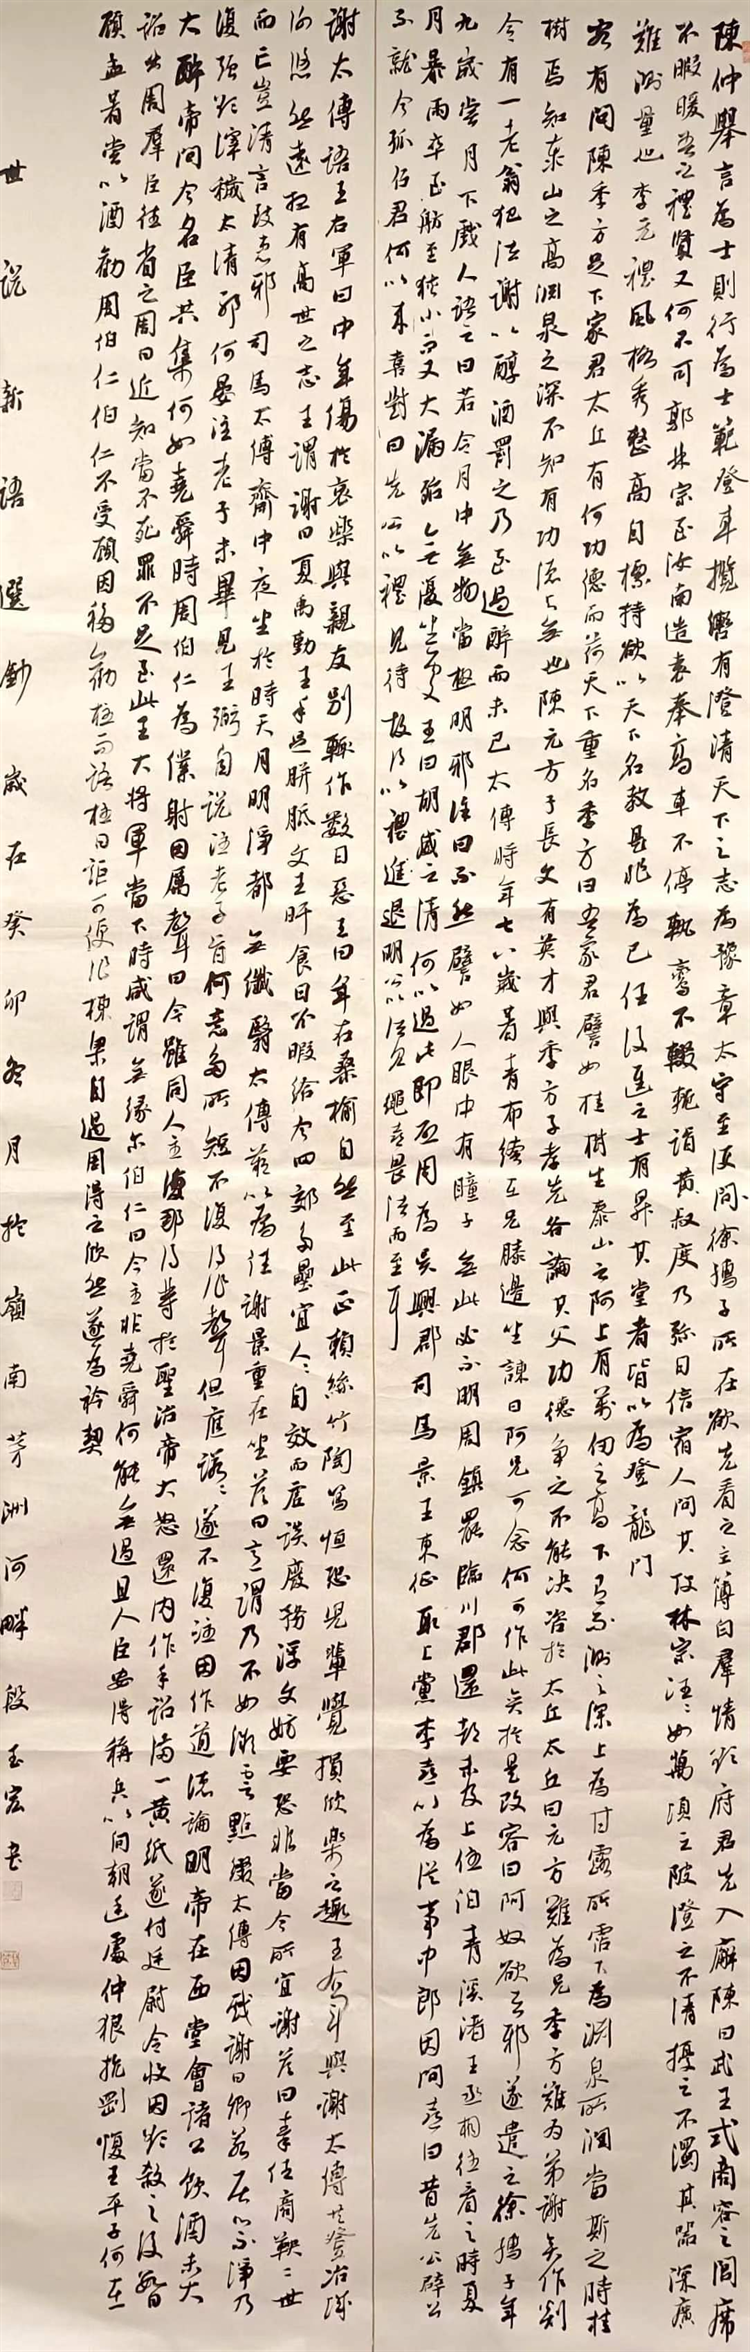 陳仲舉言為士則行為士範登車攬轡有澄清天下之志為豫章太守至便問徐孺子所在欲先看之主簿白羣情欲府君先入廨陳曰武王式商容之閭席
不暇暖吾之禮賢又何不可郭林宗至汝南造袁奉高車不停軌鸞不輟軛詣黃叔度乃彌日信宿人問其故林宗汪〻如萬頃之陂澄之不清擾之不濁其器深廣
難測量也李元禮風格秀整高自標持欲以天下名教是非為己任後進之士有昇其堂者皆以為登龍門
客有問陳季方足下家君太丘有何功德而荷天下重名季方曰吾家君譬如桂樹生泰山之阿上有萬仞之高下有不測之深上為甘露所霑下為淵泉所潤當斯之時桂
樹焉知泰山之高淵泉之深不知有功德與無也陳元方子長文有英才與季方子孝先各論其父功德爭之不能決咨於太丘太丘曰元方難為兄季方難為弟謝奕作剡
令有一老翁犯法謝以醇酒罰之乃至過醉而未已太傅時年七八歲著青布絝在兄膝邊坐諫曰阿兄可念何可作此奕於是改容曰阿奴欲去邪遂遣之徐孺子年
九歲嘗月下戲人語之曰若令月中無物當極明邪徐曰不然譬如人眼中有瞳子無此必不明周鎮罷臨川郡還都未及上住泊青溪渚王丞相往看之時夏
月暴雨卒至舫至狹小而又大漏殆無復坐處王曰胡威之清何以過此即啟用為吳興郡司馬景王東征取上黨李喜以為從事中郎因問喜曰昔先公辟君
不就今孤召君何以來喜對曰先公以禮見待故得以禮進退明公以法見繩喜畏法而至耳
謝太傅語王右軍曰中年傷於哀樂與親友別輒作數日惡王曰年在桑榆自然至此正賴絲竹陶寫恒恐兒輩覺損欣樂之趣王右軍與謝太傅共登冶城
謝悠然遠想有高世之志王謂謝曰夏禹勤王手足胼胝文王旰食日不暇給今四郊多壘宜人〻自效而虛談廢務浮文妨要恐非當今所宜謝答曰秦任商鞅二世
而亡豈清言致患邪司馬太傅齋中夜坐於時天月明淨都無纖翳太傅歎以為佳謝景重在坐答曰意謂乃不如微雲點綴太傅因戲謝曰卿居心不淨乃
復強欲滓穢太清邪何晏注老子未畢見王弼自說注老子旨何意多所短不復得作聲但應諾〻遂不復注因作道德論明帝在西堂會諸公飲酒未大
大醉帝問今名臣共集何如堯舜時周伯仁為僕射因厲聲曰今雖同人主復那得等於聖治帝大怒還內作手詔滿一黃紙遂付廷尉令收因欲殺之後數日
詔出周羣臣往省之周曰近知當不死罪不足至此王大將軍當下時咸謂無緣爾伯仁曰今主非堯舜何能無過且人臣安得稱兵以向朝廷處仲狼抗剛愎王平子何在
顧孟著嘗以酒勸周伯仁伯仁不受顧因移勸柱而語柱曰詎可便作棟梁自遇周得之欣然遂為衿契
世說新語選鈔歲在癸卯冬月於嶺南芳洲河畔段玉宏書